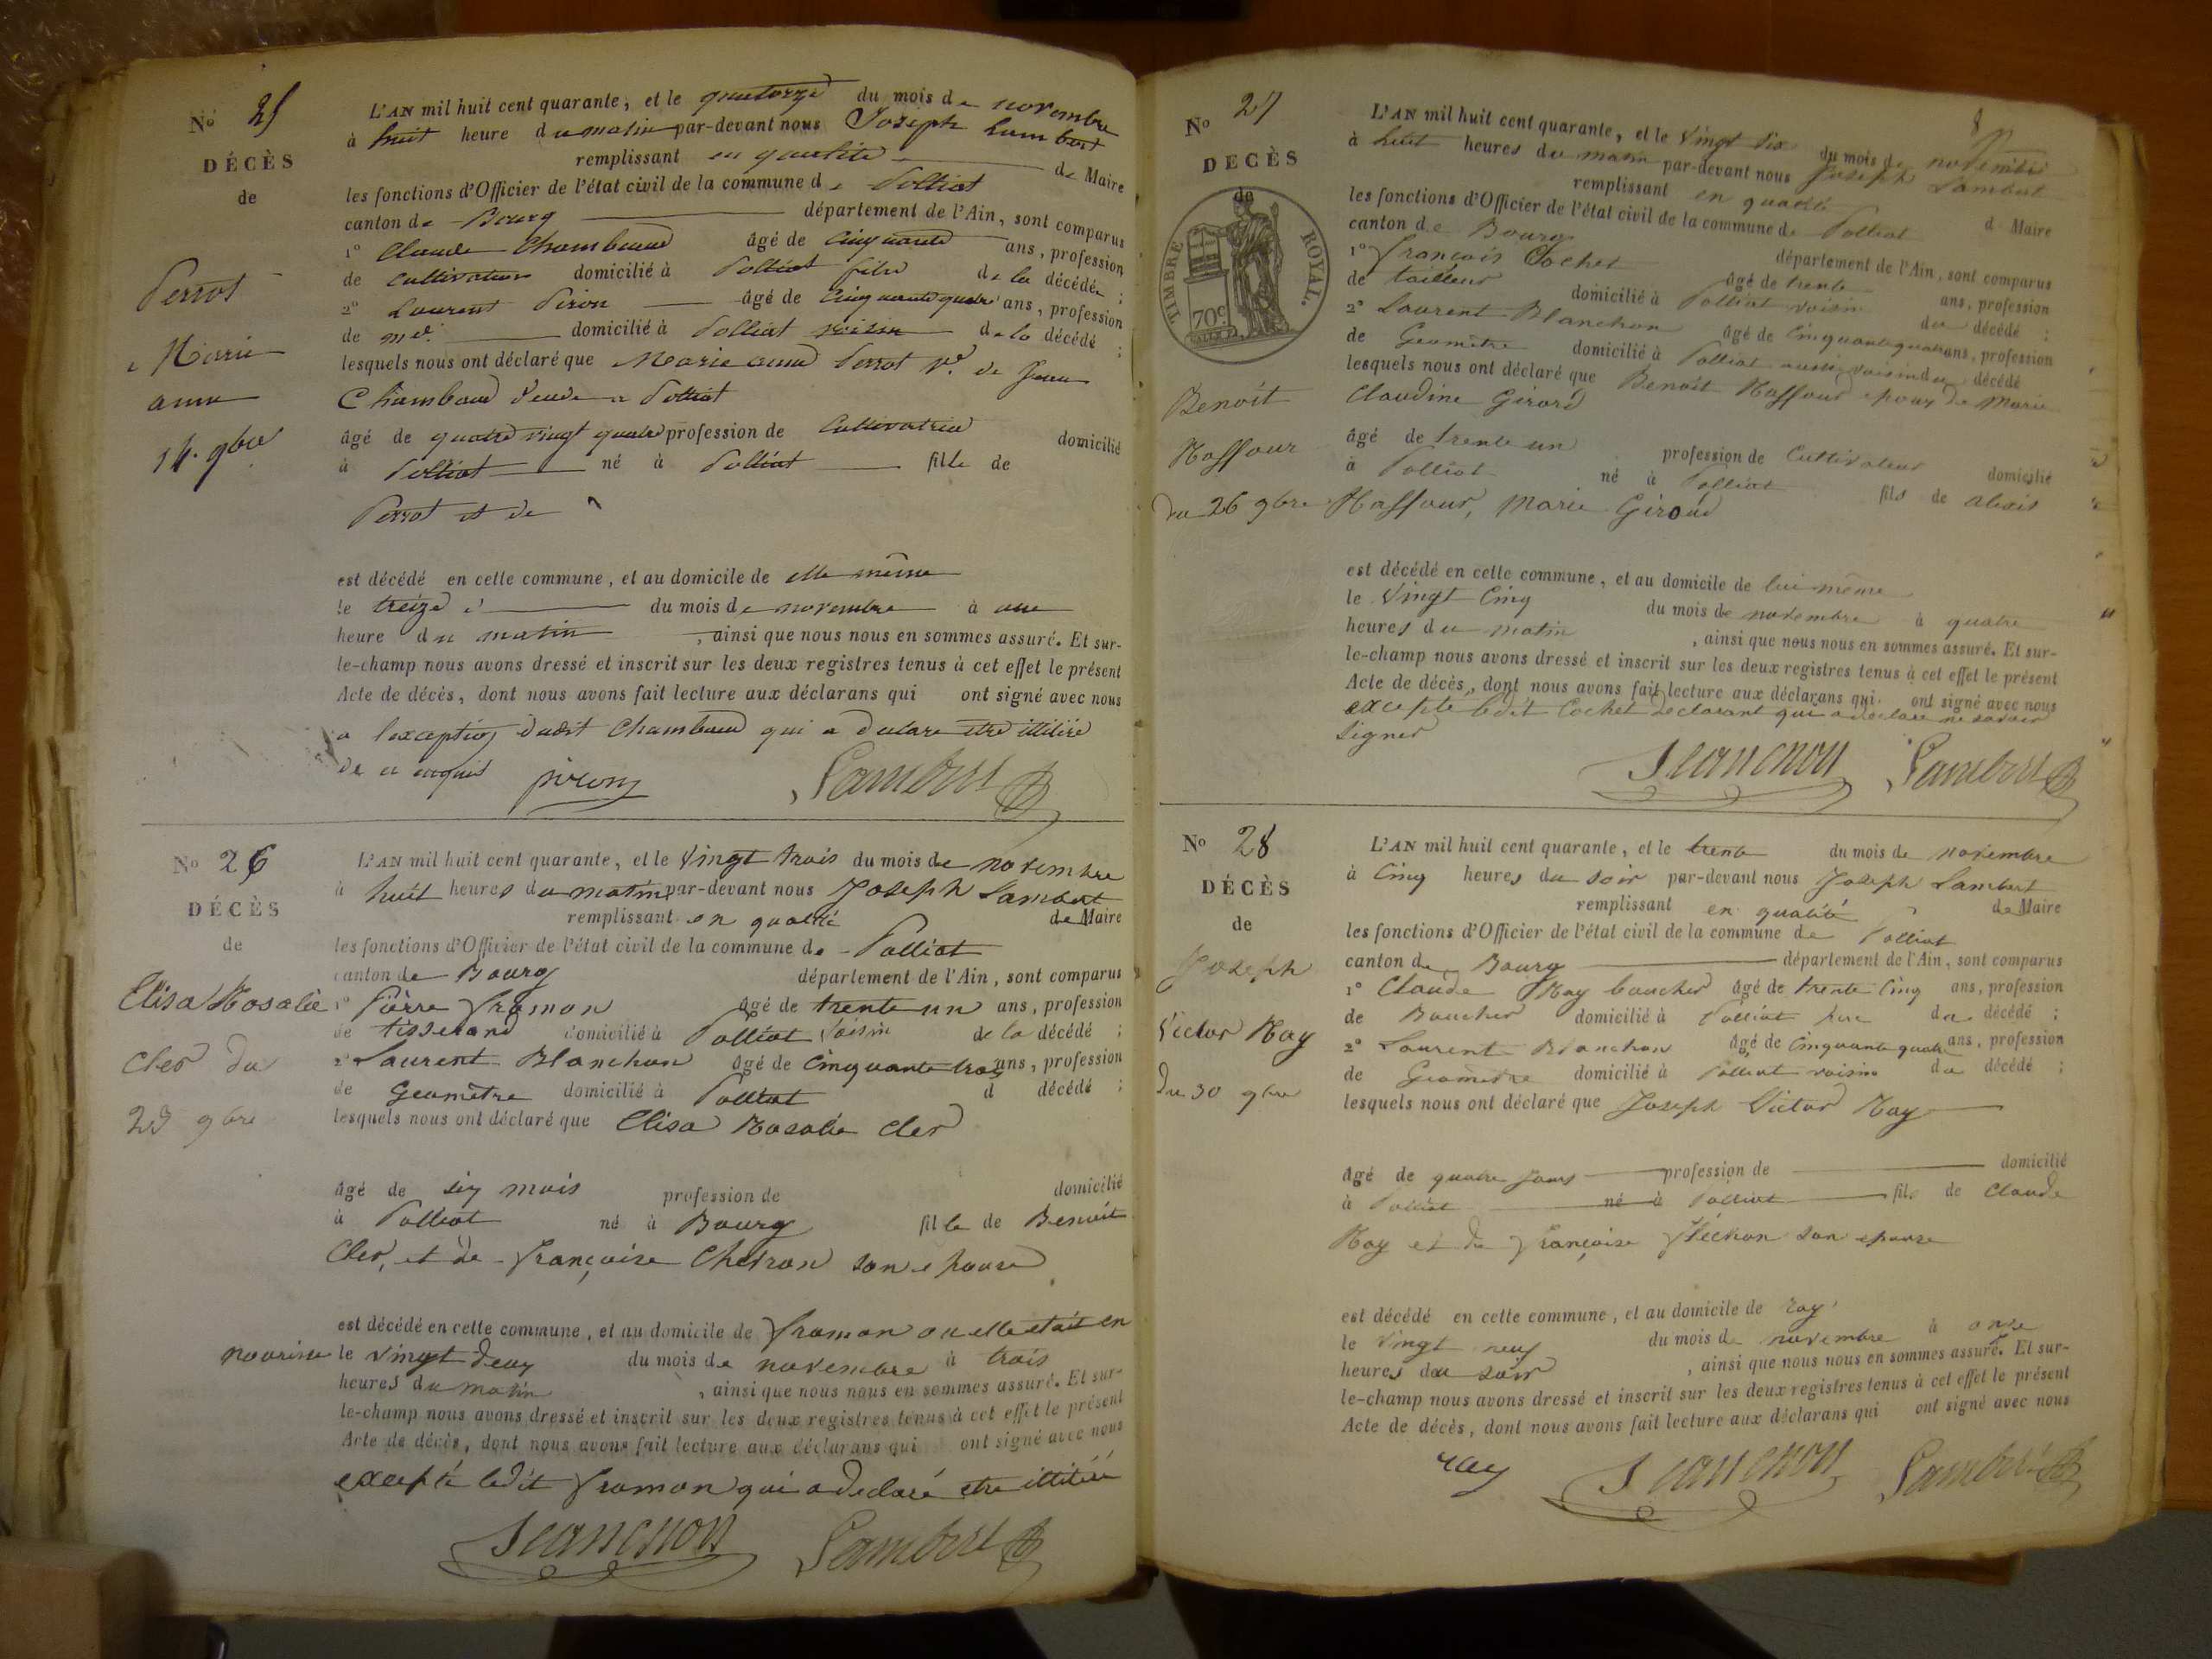 No 25
DÉCÈS
de
Perrot
Marie
anne
14. 9bre
L'AN mil huit cent quarante, et le quatorze du mois de novembre
à huit heure du matin par-devant nous Joseph Lambert
remplissant en qualité de Maire
les fonctions d'Officier de l'état civil de la commune de Polliat
canton de Bourg département de l'Ain, sont comparus
1º Claude Chambaud âgé de cinquante ans, profession
de cultivateur domicilié à Polliat fils de la décédée ;
2º Laurent Piron âgé de cinquante quatre ans, profession
de md. domicilié à Polliat voisin de la décédé ;
lesquels nous ont déclaré que Marie anne Perrot Ve. de Jean
Chambaud
âgé de quatre vingt quatre profession de Cultivatrice domicilié
à Polliat né à Polliat fille de
Perrot et de
est décédé en cette commune, et au domicile de elle même
le treize du mois de novembre à une
heure du matin , ainsi que nous nous en sommes assuré. Et sur-
le-champ nous avons dressé et inscrit sur les deux registres tenus à cet effet le présent
Acte de décès, dont nous avons fait lecture aux déclarans qui ont signé avec nous
a lexception dudit Chambaud qui a declare etre illitéré
de ce enquis piron Lambert
No 26
DÉCÈS
de
Elisa Rosalie
Cler du
23 9bre
L'AN mil huit cent quarante, et le Vingt trois du mois de novembre
à huit heures du matin par-devant nous Joseph Lambert
remplissant en qualité de Maire
les fonctions d'Officier de l'état civil de la commune de Polliat
canton de Bourg département de l'Ain, sont comparus
1º Pierre Framon âgé de trente un ans, profession
de tisserand domicilié à Polliat Voisin de la décédé ;
2º Laurent Blanchon âgé de Cinquante trois ans, profession
de Geomètre domicilié à Polliat d décédé ;
lesquels nous ont déclaré que Elisa Rosalie Cler
âgé de six mois profession de domicilié
à Polliat né à Bourg fille de Benoit
Cler, et de françoise son epouse
est décédé en cette commune, et au domicile de framon ou elle etait en
nourice le vingt deux du mois de novembre à trois
heures du matin , ainsi que nous nous en sommes assuré. Et sur-
le-champ nous avons dressé et inscrit sur les deux registres tenus à cet effet le présent
Acte de décès, dont nous avons fait lecture aux déclarans qui ont signé avec nous
excepté ledit framon qui a declaré etre illitéré
Blanchon Lambert
8
No 27
DECÈS
de
TIMBRE ROYAL.
70c
Benoit
Raffour
du 26 9bre
L'AN mil huit cent quarante, et le Vingt six du mois de novembre
à huit heures du matin par-devant nous Joseph Lambert
remplissant en qualité de Maire
les fonctions d'Officier de l'état civil de la commune de Polliat
canton de Bourg département de l'Ain, sont comparus
1º françois Cochet âgé de trente ans, profession
de tailleur domicilié à Polliat voisin du décédé ;
2º Laurent Blanchon âgé de Cinquante quatre ans, profession
de Geomètre domicilié à Polliat aussi voisin du décédé
lesquels nous ont déclaré que Benoit Raffour epoux de Marie
Claudine Girard
âgé de trente un profession de Cultivateur domicilié
à Polliat né à Polliat fils de alexis
Raffour, Marie Giroud
est décédé en cette commune, et au domicile de lui-même
le Vingt Cinq du mois de novembre à quatre
heures du matin , ainsi que nous nous en sommes assuré. Et sur-
le-champ nous avons dressé et inscrit sur les deux registres tenus à cet effet le présent
Acte de décès, dont nous avons fait lecture aux déclarans qui ont signé avec nous
excepte ledit Cochet declarant qui a declaré ne savoir
signer
Blanchon Lambert
No 28
DÉCÈS
de
Joseph
Victor Ray
du 30 9bre
L'AN mil huit cent quarante, et le trente du mois de novembre
à Cinq heures du soir par-devant nous Joseph Lambert
remplissant en qualité de Maire
les fonctions d'Officier de l'état civil de la commune de Polliat
canton de Bourg département de l'Ain, sont comparus
1º Claude Ray boucher âgé de trente Cinq ans, profession
de Boucher domicilié à Polliat pere du décédé ;
2º Laurent Blanchon âgé de Cinquante quatre ans, profession
de Geomètre domicilié à Polliat voisin du décédé ;
lesquels nous ont déclaré que Joseph Victor Ray
âgé de quatre jours profession de domicilié
à Polliat né à Polliat fils de Claude
Ray et de françoise son epouse
est décédé en cette commune, et au domicile de ray
le Vingt neuf du mois de novembre à onze
heures du soir , ainsi que nous nous en sommes assuré. Et sur-
le-champ nous avons dressé et inscrit sur les deux registres tenus à cet effet le présent
Acte de décès, dont nous avons fait lecture aux déclarans qui ont signé avec nous
ray Blanchon Lambert